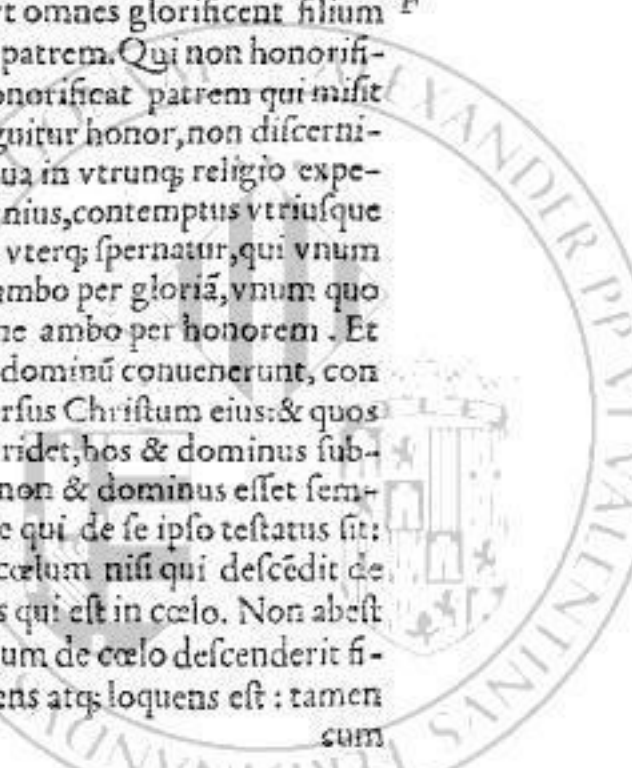 vt omnes glorificent filium F
patrem. Qui non honorifi-
onorificat patrem qui misit
guitur honor, non discerni-
ua in vtrunq; religio expe-
nius, contemptus vtriusque
vterq; spernatur, qui vnum
ambo per gloriã, vnum quo
ne ambo per honorem . Et
dominũ conuenerunt, con
rsus Christum eius: & quos
ridet, hos & dominus sub-
non & dominus esset sem-
e qui de se ipso testatus sit:
cœlum nisi qui descẽdit de
s qui est in cœlo. Non abest
um de cœlo descenderit fi-
ens atq; loquens est : tamen
cum
ALEXANDER PP VI VALENTINUS